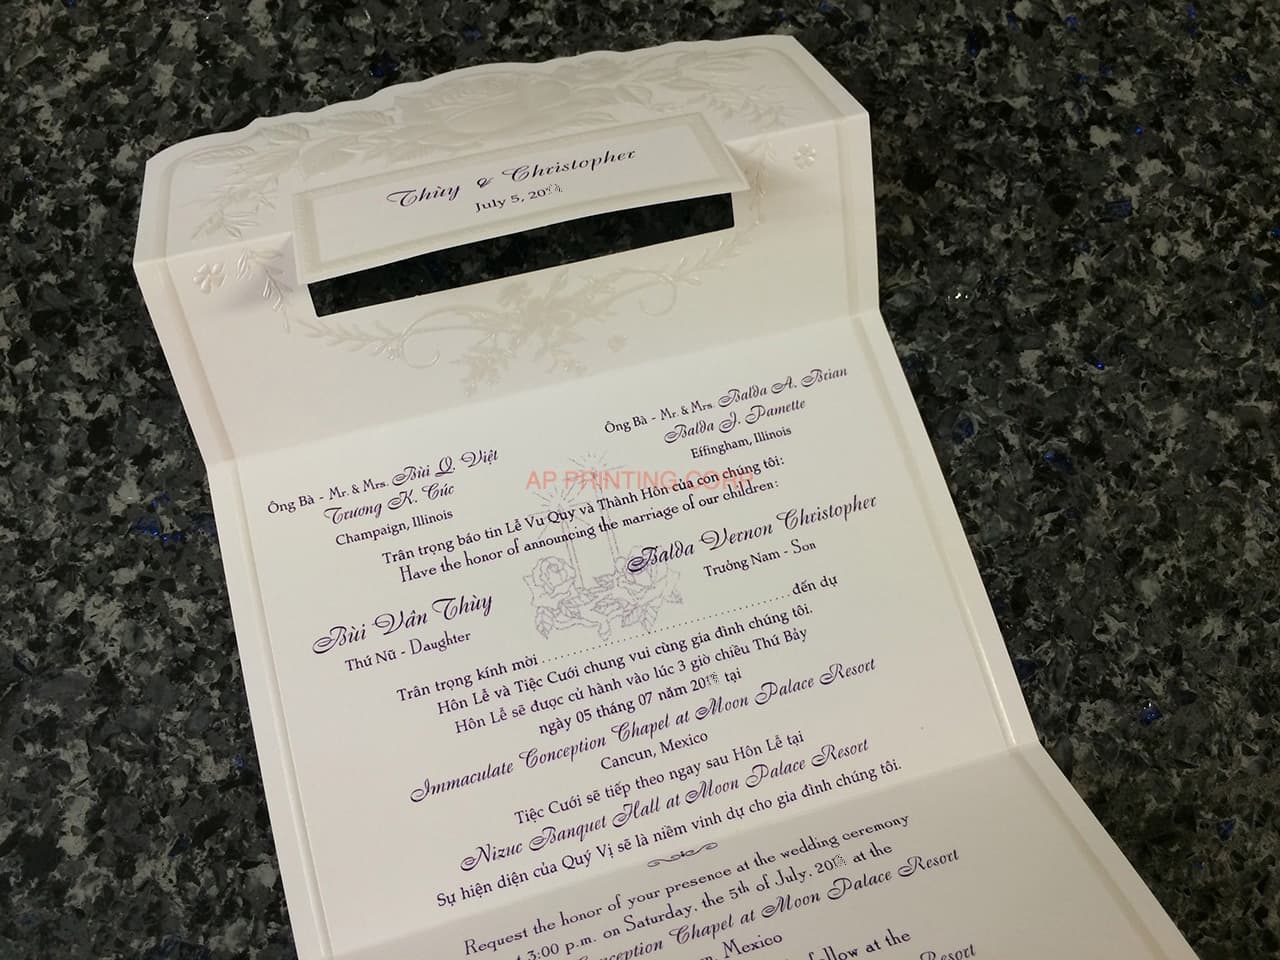 Thùy & Christopher
July 5, 20
Ông Bà - Mr. & Mrs. Bùi Q. Việt
Trương K. Cúc
Champaign, Illinois
Ông Bà - Mr. & Mrs. Balda A. Brian
Balda J. Pamette
Effingham, Illinois
AP PRINTING CORP
Trân trọng báo tin Lễ Vu Quy và Thành Hôn của con chúng tôi:
Have the honor of announcing the marriage of our children:
Bùi Vân Thùy
Thứ Nữ - Daughter
Balda Vernon Christopher
Trưởng Nam - Son
Trân trọng kính mời ........................................ đến dự
Hôn Lễ và Tiệc Cưới chung vui cùng gia đình chúng tôi.
Hôn Lễ sẽ được cử hành vào lúc 3 giờ chiều Thứ Bảy
ngày 05 tháng 07 năm 20 tại
Immaculate Conception Chapel at Moon Palace Resort
Cancun, Mexico
Tiệc Cưới sẽ tiếp theo ngay sau Hôn Lễ tại
Nizuc Banquet Hall at Moon Palace Resort
Sự hiện diện của Quý Vị sẽ là niềm vinh dự cho gia đình chúng tôi.
Request the honor of your presence at the wedding ceremony
3:00 p.m. on Saturday, the 5th of July, 20 at the
Conception Chapel at Moon Palace Resort
Mexico
follow at the
Resort